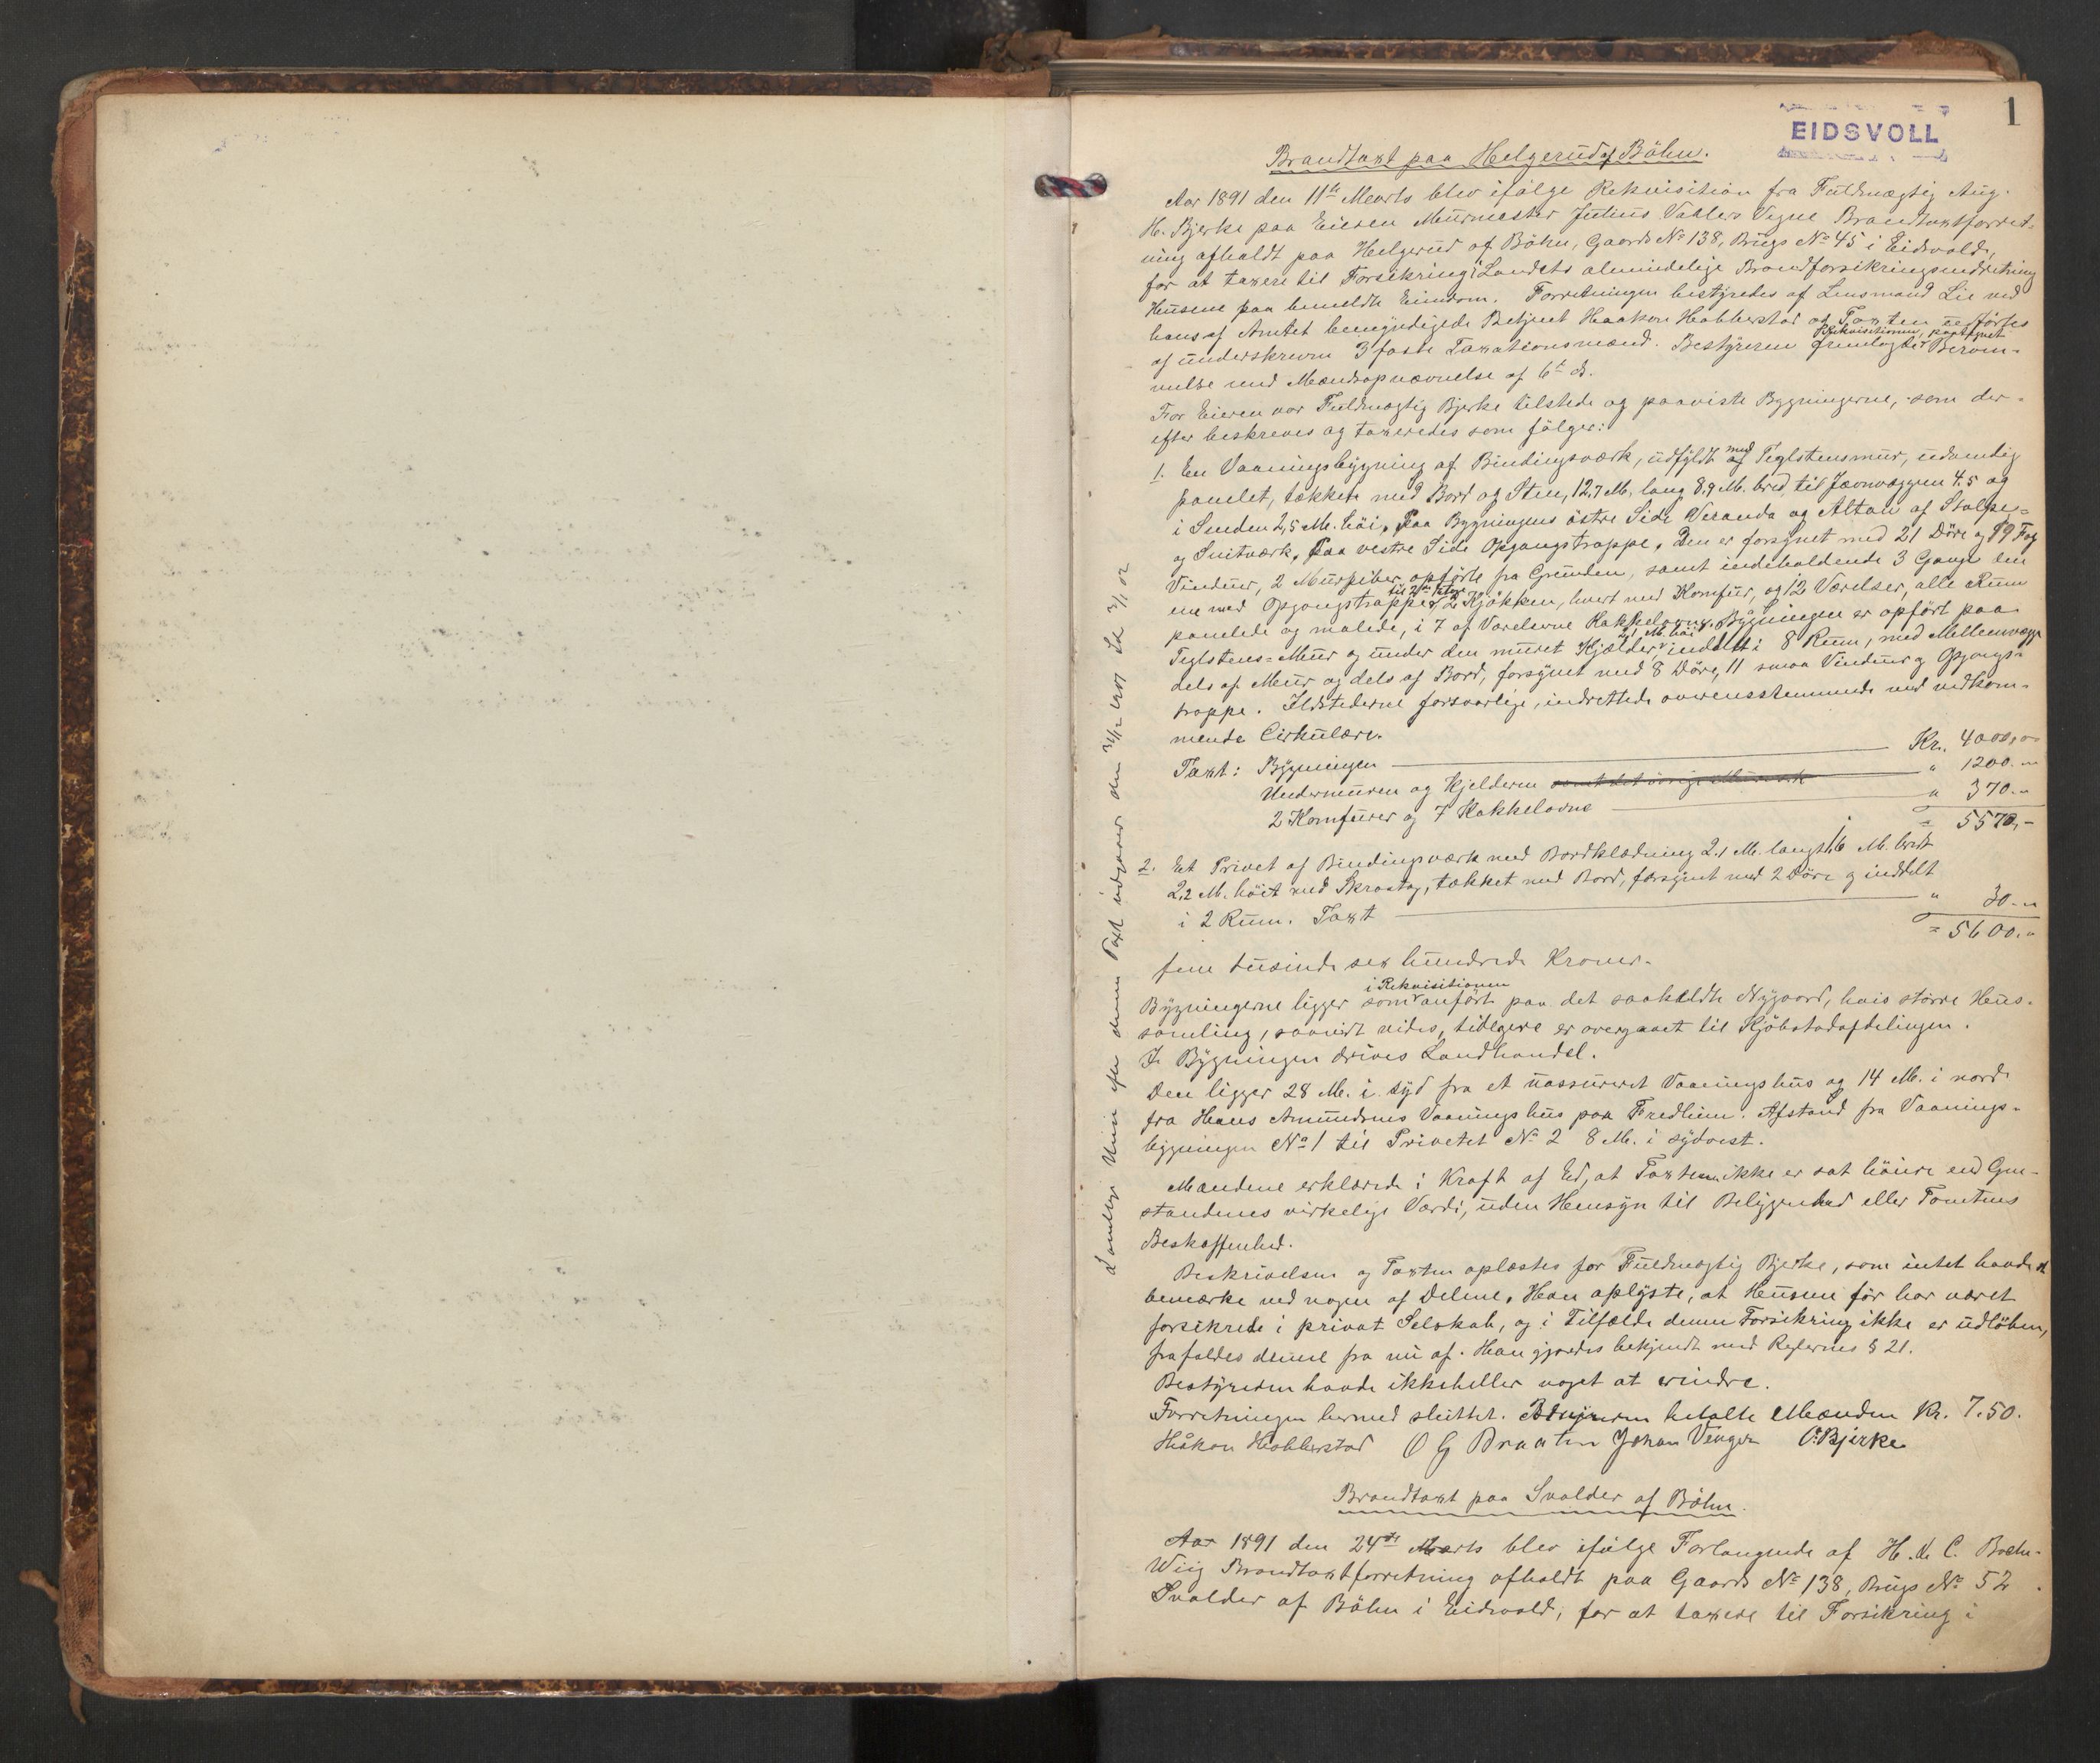 1
EIDSVOLL
Brandtaxt paa Helgerud af Böhn.
Aar 1891 den 11te Marts blev ifölge Rekvisition fra Fuldmægtig Aug.
H. Bjerke paa Eieren Murmester Julius Vahlers Vegne Brandtaxtforret-
ning afholdt paa Helgerud af Böhn, Gaards No 138, Brugs No 45 i Eidsvold,
for at taxere til Forsikring i Landets almindelige Brandforsikringsindretning
Husene paa bemeldte Eiendom. Forretningen bestyredes af Lensmand Lie ved
hans af Amtet bemyndigede Betjent Haakon Hobberstad og Taxten udförtes
af underskrevne 3 faste Taxationsmænd. Bestyreren fremlagde Rekvisitionen, paategnet Beram-
melse med Mændsopnævnelse af 6te ds.
For Eieren var Fuldmægtig Bjerke tilstede og paaviste Bygningerne, som der-
efter beskreves og taxeredes som fölger:
1. En Vaaningsbygning af Bindingsværk, udfyldt med Teglstensmur, udvendig
panelet, tækket med Bord og Sten, 12,7 M. lang 8,9 M. bred, til Jævnvæggen 4.5 og
i Enden 2,5 M. höi. Paa Bygningens östre Side Veranda og Altan af Stolpe-
og Snitværk. Paa vestre Side Opgangstrappe. Den er forsynet med 21 Döre og 19 Fag
Vinduer, 2 Murpiber opförte fra Grunden, samt indeholdende 3 Gange den
ene med Opgangstrappe til 2den Etage, 2 Kjökken, hvert med Komfur, og 12 Værelser, alle Rum
panelede og malede, i 7 af Værelserne Kakkelovne. Bygningen er opfört paa
Teglstens-Mur og under den muret Kjælder 2,1 M. höi inddelt i 8 Rum, med Mellemvægge
dels af Mur og dels af Bord, forsynet med 8 Döre, 11 smaa Vinduer og Opgangs-
trappe. Ildstederne forsvarlige, indrettede overensstemmende med vedkom-
mende Cirkulære.
Taxt: Bygningen Kr. 4000,00
Undermuren og Kjelderen " 1200.-
2 Komfurer og 7 Kakkelovne " 370.-
= 5570,-
2. Et Privet af Bindingsværk med Bordklædning 2.1 M. langt 1,6 M. bredt
2,2 M. höit med Skraatag, tækket med Bord, forsynet med 2 Döre og inddelt
i 2 Rum. Taxt " 30.-
= 5600.-
fem tusinde sex hundrede Kroner.
Bygningerne ligger som i Rekvisitionen anfört paa det saakaldte Nygaard, hvis större Hus-
samling, saavidt vides, tidligere er overgaaet til Kjöbstadafdelingen.
I Bygningen drives Landhandel.
Den ligger 28 M. i syd fra et uassureret Vaaningshus og 14 M. i nord
fra Hans Amundsens Vaaningshus paa Fredheim. Afstand fra Vaanings-
bygningen No 1 til Privetet No 2 8 M. i sydvest.
Mændene erklærede i Kraft af Ed, at Taxten ikke er sat höiere end Gjen-
standenes virkelige Værdi, uden Hensyn til Beliggenhed eller Tomtens
Beskaffenhed.
Beskrivelsen og Taxten oplæstes for Fuldmægtig Bjerke, som intet havde at
bemærke ved nogen af Delene. Han oplyste, at Husene för har været
forsikrede i privat Selskab, og i Tilfælde denne Forsikring ikke er udlöben,
frafaldes denne fra nu af. Han gjordes bekjendt med Reglernes § 21.
Bestyreren havde ikkeheller noget at erindre.
Forretningen hermed sluttet. Bestyreren betalte Mændene Kr. 7.50.
Håkon Hobberstad O G Braaten Johan Venger O. Bjerke
Brandtaxt paa Svalder af Böhn.
Aar 1891 den 24de Marts blev ifölge Forlangende af H. & C. Boehn-
Wiig Brandtaxtforretning afholdt paa Gaards No 138, Brugs No 52
Svalder af Böhn i Eidsvold, for at taxere til Forsikring i
efter denne Taxt udgaar den 31/12 1901